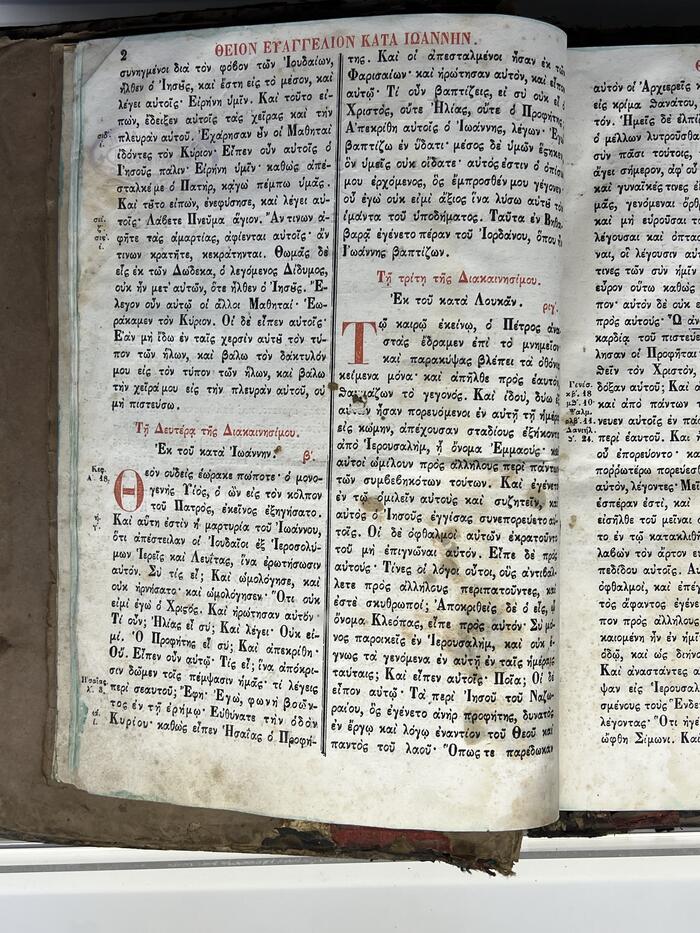 2
ΘΕΙΟΝ ΕΥΑΓΓΕΛΙΟΝ ΚΑΤΑ ΙΩΑΝΝΗΝ.
συνηγμένοι διὰ τὸν φόβον τῶν Ἰουδαίων,
ἦλθεν ὁ Ἰησοῦς, καὶ ἔστη εἰς τὸ μέσον, καὶ
λέγει αὐτοῖς· Εἰρήνη ὑμῖν. Καὶ τοῦτο εἰ-
πὼν, ἔδειξεν αὐτοῖς τὰς χεῖρας καὶ τὴν
πλευρὰν αὐτοῦ. Ἐχάρησαν οὖν οἱ Μαθηταὶ
ἰδόντες τὸν Κύριον. Εἶπεν οὖν αὐτοῖς ὁ
Ἰησοῦς πάλιν· Εἰρήνη ὑμῖν· καθὼς ἀπέ-
σταλκέ με ὁ Πατὴρ, κᾀγὼ πέμπω ὑμᾶς.
Καὶ τοῦτο εἰπὼν, ἐνεφύσησε, καὶ λέγει αὐ-
τοῖς· Λάβετε Πνεῦμα ἅγιον. Ἄν τινων ἀ-
φῆτε τὰς ἁμαρτίας, ἀφίενται αὐτοῖς· ἄν
τινων κρατῆτε, κεκράτηνται. Θωμᾶς δὲ
εἷς ἐκ τῶν Δώδεκα, ὁ λεγόμενος Δίδυμος,
οὐκ ἦν μετ' αὐτῶν, ὅτε ἦλθεν ὁ Ἰησοῦς. Ἔ-
λεγον οὖν αὐτῷ οἱ ἄλλοι Μαθηταί· Ἑω-
ράκαμεν τὸν Κύριον. Ὁ δὲ εἶπεν αὐτοῖς·
Ἐὰν μὴ ἴδω ἐν ταῖς χερσὶν αὐτοῦ τὸν τύ-
πον τῶν ἥλων, καὶ βάλω τὸν δάκτυλόν
μου εἰς τὸν τύπον τῶν ἥλων, καὶ βάλω
τὴν χεῖρά μου εἰς τὴν πλευρὰν αὐτοῦ, οὐ
μὴ πιστεύσω.
Τῇ Δευτέρᾳ τῆς Διακαινησίμου.
Ἐκ τοῦ κατὰ Ἰωάννην. β'.
Κεφ.
Α'. 18.
Θεὸν οὐδεὶς ἑώρακε πώποτε· ὁ μονο-
γενὴς Υἱὸς, ὁ ὢν εἰς τὸν κόλπον
τοῦ Πατρὸς, ἐκεῖνος ἐξηγήσατο.
Καὶ αὕτη ἐστὶν ἡ μαρτυρία τοῦ Ἰωάννου,
ὅτι ἀπέστειλαν οἱ Ἰουδαῖοι ἐξ Ἱεροσολύ-
μων Ἱερεῖς καὶ Λευίτας, ἵνα ἐρωτήσωσιν
αὐτόν. Σὺ τίς εἶ; Καὶ ὡμολόγησε, καὶ
οὐκ ἠρνήσατο· καὶ ὡμολόγησεν· Ὅτι οὐκ
εἰμὶ ἐγὼ ὁ Χριστός. Καὶ ἠρώτησαν αὐτόν·
Τί οὖν; Ἠλίας εἶ σύ; Καὶ λέγει· Οὐκ εἰ-
μί. Ὁ Προφήτης εἶ σύ; Καὶ ἀπεκρίθη·
Οὔ. Εἶπον οὖν αὐτῷ· Τίς εἶ; ἵνα ἀπόκρι-
σιν δῶμεν τοῖς πέμψασιν ἡμᾶς· τί λέγεις
Ἡσαΐας
περὶ σεαυτοῦ; Ἔφη· Ἐγὼ, φωνὴ βοῶν-
τος ἐν τῇ ἐρήμῳ· Εὐθύνατε τὴν ὁδὸν
Κυρίου· καθὼς εἶπεν Ἡσαΐας ὁ Προφή-
της. Καὶ οἱ ἀπεσταλμένοι ἦσαν ἐκ τῶν
Φαρισαίων· καὶ ἠρώτησαν αὐτὸν, καὶ εἶπον
αὐτῷ· Τί οὖν βαπτίζεις, εἰ σὺ οὐκ εἶ ὁ
Χριστὸς, οὔτε Ἠλίας, οὔτε ὁ Προφήτης;
Ἀπεκρίθη αὐτοῖς ὁ Ἰωάννης, λέγων· Ἐγὼ
βαπτίζω ἐν ὕδατι· μέσος δὲ ὑμῶν ἕστηκεν
ὃν ὑμεῖς οὐκ οἴδατε· αὐτός ἐστιν ὁ ὀπίσω
μου ἐρχόμενος, ὃς ἔμπροσθέν μου γέγονεν·
οὗ ἐγὼ οὐκ εἰμὶ ἄξιος ἵνα λύσω αὐτοῦ τὸν
ἱμάντα τοῦ ὑποδήματος. Ταῦτα ἐν Βηθα-
βαρᾷ ἐγένετο πέραν τοῦ Ἰορδάνου, ὅπου ἦν
Ἰωάννης βαπτίζων.
Τῇ τρίτῃ τῆς Διακαινησίμου.
Ἐκ τοῦ κατὰ Λουκᾶν. ριγ'.
Τῷ καιρῷ ἐκείνῳ, ὁ Πέτρος ἀνα-
στὰς ἔδραμεν ἐπὶ τὸ μνημεῖον
καὶ παρακύψας βλέπει τὰ ὀθόνια
κείμενα μόνα· καὶ ἀπῆλθε πρὸς ἑαυτὸν
θαυμάζων τὸ γεγονός. Καὶ ἰδοὺ, δύο ἐξ
αὐτῶν ἦσαν πορευόμενοι ἐν αὐτῇ τῇ ἡμέρᾳ
εἰς κώμην, ἀπέχουσαν σταδίους ἑξήκοντα
ἀπὸ Ἱερουσαλὴμ, ᾗ ὄνομα Ἐμμαούς· καὶ
αὐτοὶ ὡμίλουν πρὸς ἀλλήλους περὶ πάντων
τῶν συμβεβηκότων τούτων. Καὶ ἐγένετο
ἐν τῷ ὁμιλεῖν αὐτοὺς καὶ συζητεῖν, καὶ
αὐτὸς ὁ Ἰησοῦς ἐγγίσας συνεπορεύετο αὐ-
τοῖς. Οἱ δὲ ὀφθαλμοὶ αὐτῶν ἐκρατοῦντο
τοῦ μὴ ἐπιγνῶναι αὐτόν. Εἶπε δὲ πρὸς
αὐτούς· Τίνες οἱ λόγοι οὗτοι, οὓς ἀντιβάλ-
λετε πρὸς ἀλλήλους περιπατοῦντες, καὶ
ἐστὲ σκυθρωποί; Ἀποκριθεὶς δὲ ὁ εἷς, ᾧ
ὄνομα Κλεόπας, εἶπε πρὸς αὐτόν· Σὺ μό-
νος παροικεῖς ἐν Ἱερουσαλὴμ, καὶ οὐκ ἔ-
γνως τὰ γενόμενα ἐν αὐτῇ ἐν ταῖς ἡμέραις
ταύταις; Καὶ εἶπεν αὐτοῖς· Ποῖα; Οἱ δὲ
εἶπον αὐτῷ· Τὰ περὶ Ἰησοῦ τοῦ Ναζω-
ραίου, ὃς ἐγένετο ἀνὴρ προφήτης, δυνατὸς
ἐν ἔργῳ καὶ λόγῳ ἐναντίον τοῦ Θεοῦ καὶ
παντὸς τοῦ λαοῦ· Ὅπως τε παρέδωκαν
αὐτὸν οἱ Ἀρχιερεῖς
εἰς κρῖμα θανάτου,
τόν. Ἡμεῖς δὲ ἠλπί
ὁ μέλλων λυτροῦσθαι
σὺν πᾶσι τούτοις,
ἄγει σήμερον, ἀφ' οὗ
καὶ γυναῖκές τινες ἐξ
μᾶς, γενόμεναι ὄρθ
καὶ μὴ εὑροῦσαι τὸ
λέγουσαι καὶ ὀπτασ
ναι, οἳ λέγουσιν αὐτ
τινες τῶν σὺν ἡμῖν
εὗρον οὕτω καθὼς
πον· αὐτὸν δὲ οὐκ εἶ
πρὸς αὐτούς· Ὦ ἀν
καρδίᾳ τοῦ πιστεύε
λησαν οἱ Προφῆται
θεῖν τὸν Χριστὸν,
δόξαν αὐτοῦ; Καὶ
καὶ ἀπὸ πάντων τ
νευεν αὐτοῖς ἐν πάσ
περὶ ἑαυτοῦ. Καὶ
οὗ ἐπορεύοντο· καὶ
πορρωτέρω πορεύεσθ
αὐτὸν, λέγοντες· Μεῖ
ἑσπέραν ἐστὶ, καὶ
εἰσῆλθε τοῦ μεῖναι
τῷ κατακλιθῆ
λαβὼν τὸν ἄρτον εὐ
πεδίδου αὐτοῖς. Αὐ
ὀφθαλμοὶ, καὶ ἐπέγ
τὸς ἄφαντος ἐγένε
πον πρὸς ἀλλήλους
καιομένη ἦν ἐν ἡμ
ὁδῷ, καὶ ὡς διήνο
Καὶ ἀναστάντες α
ψαν εἰς Ἱερουσα
σμένους τοὺς Ἕνδε
λέγοντας· Ὅτι ἠγέ
ὤφθη Σίμωνι. Καὶ